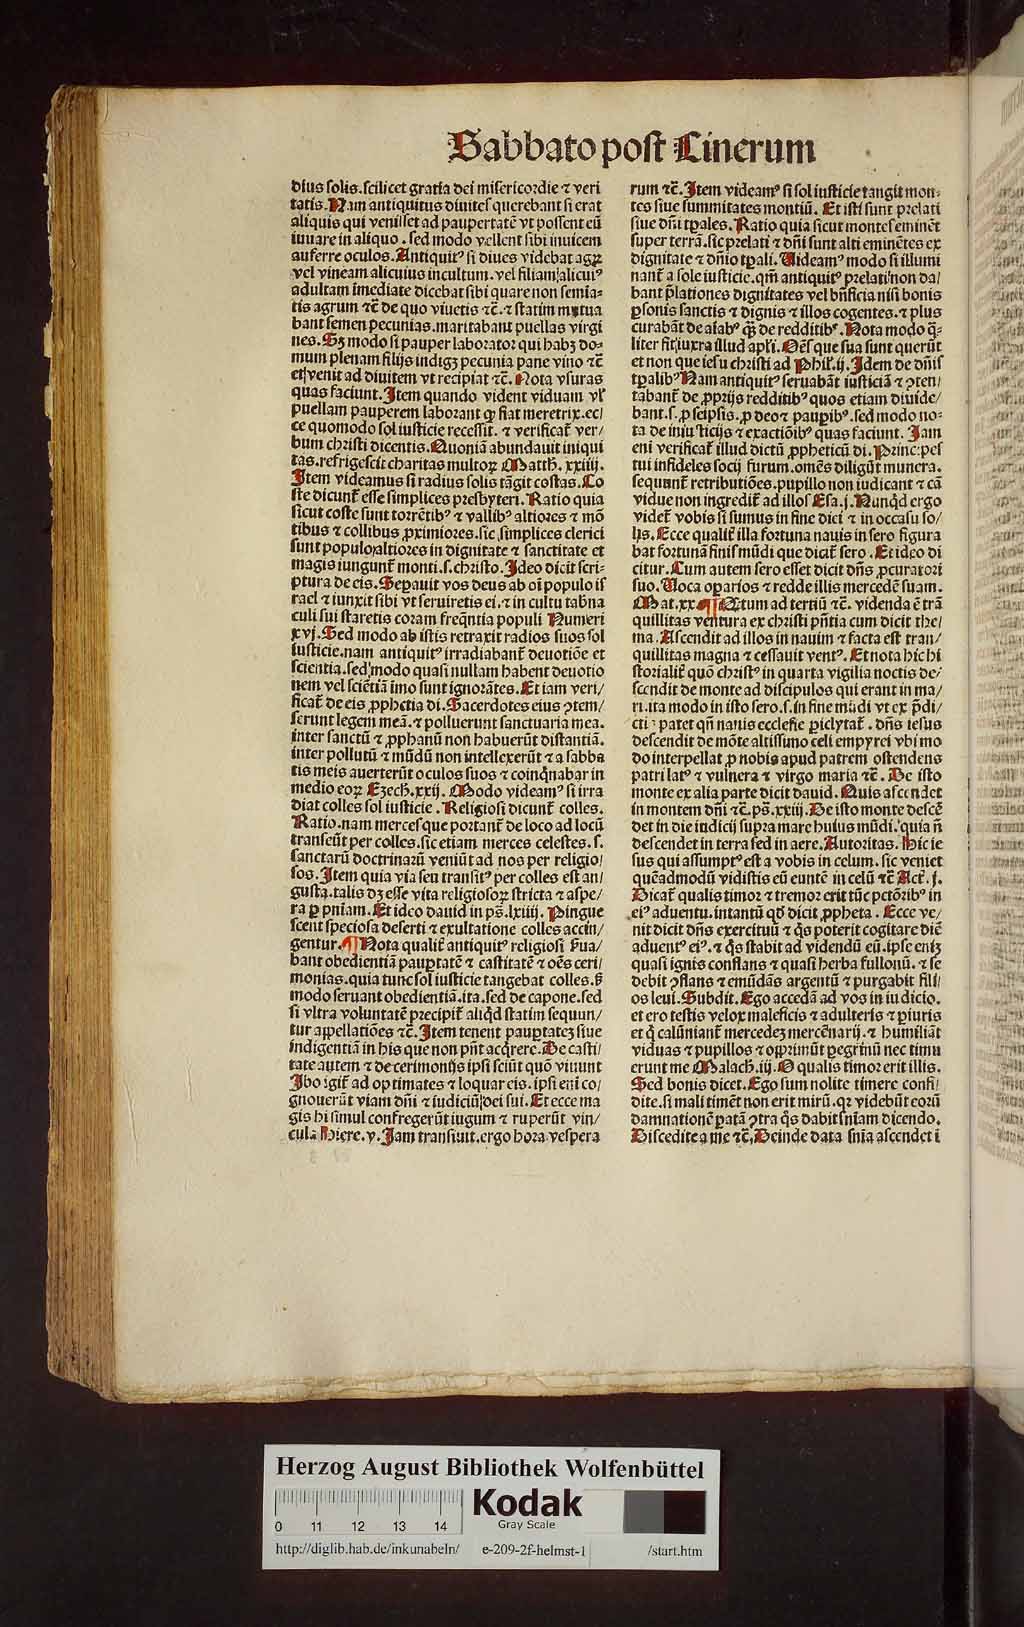 Sabbato post Cinerum
dius solis. scilicet gratia dei misericordie ⁊ veri
tatis. Nam antiquitus diuites querebant si erat
aliquis qui venisset ad paupertatē vt possent eū
iuuare in aliquo. sed modo vellent sibi inuicem
auferre oculos. Antiquitꝰ si diues videbat agrꝫ
vel vineam alicuius incultum. vel filiam alicuiꝰ
adultam imediate dicebat sibi quare non semia-
tis agrum ⁊c̄ de quo viuetis ⁊c̄. ⁊ statim mutua
bant semen pecunias. maritabant puellas virgi
nes. Sꝫ modo si pauper laborator qui habꝫ do-
mum plenam filijs indigꝫ pecunia pane vino ⁊c̄
et venit ad diuitem vt recipiat ⁊c̄. Nota vsuras
quas faciunt. Item quando vident viduam vl̓
puellam pauperem laborant ꝙ fiat meretrix. ec/
ce quomodo sol iusticie recessit. ⁊ verificat̄ ver/
bum christi dicentis. Quoniā abundauit iniqui
tas. refrigescit charitas multoꝝ Matth. xxiiij.
Item videamus si radius solis tāgit costas. Co
ste dicunt̄ esse simplices presbyteri. Ratio quia
sicut coste sunt torrētibꝰ ⁊ vallibꝰ altiores ⁊ mō
tibus ⁊ collibus ꝓximiores. sic simplices clerici
sunt populo altiores in dignitate ⁊ sanctitate et
magis iungunt̄ monti .s. christo. Ideo dicit scri-
ptura de eis. Sepauit vos deus ab oī populo is
rael ⁊ iunxit sibi vt seruiretis ei. ⁊ in cultu tab̄na
culi sui staretis coram freq̄ntia populi Numeri
xvj. Sed modo ab istis retraxit radios suos sol
iusticie. nam antiquitꝰ irradiabant̄ deuotiōe et
scientia. sed modo quasi nullam habent deuotio
nem vel sciētiā imo sunt ignorātes. Et iam veri/
ficat̄ de eis ꝓphetia di. Sacerdotes eius ↄtem/
serunt legem meā. ⁊ polluerunt sanctuaria mea.
inter sanctū ⁊ ꝓphanū non habuerūt distantiā.
inter pollutū ⁊ mūdū non intellexerūt ⁊ a sabba
tis meis auerterūt oculos suos ⁊ coinq̄nabar in
medio eoꝝ Ezech. xxij. Modo videamꝰ si irra
diat colles sol iusticie. Religiosi dicunt̄ colles.
Ratio. nam merces que portant̄ de loco ad locū
transeūt per colles. sic etiam merces celestes. s.
sanctarū doctrinarū veniūt ad nos per religio/
sos. Item quia via seu transitꝰ per colles est an/
gusta. talis dꝫ esse vita religiosoꝝ stricta ⁊ aspe/
ra ꝑ pn̄iam. Et ideo dauid in ps̄. lxiiij. Pingue
scent speciosa deserti ⁊ exultatione colles accin/
gentur. ¶ Nota qualit̄ antiquitꝰ religiosi s̄ua/
bant obedientiā pauꝑtatē ⁊ castitatē ⁊ oēs ceri/
monias. quia tunc sol iusticie tangebat colles. s̄
modo seruant obedientiā. ita. sed de capone. sed
si vltra voluntatē precipit̄ aliqd̄ statim sequun/
tur appellatiōes ⁊c̄. Item tenent pauꝑtateꝫ siue
indigentiā in his que non pn̄t acq̄rere. De casti/
tate autem ⁊ de cerimonijs ipsi sciūt quō viuunt
Ibo igit̄ ad optimates ⁊ loquar eis. ipsi eni co/
gnouerūt viam dn̄i ⁊ iudiciū dei sui. Et ecce ma
gis hi simul confregerūt iugum ⁊ ruperūt vin/
cula Hiere. v. Iam transiuit. ergo hora vespera
rum ⁊c̄. Item videamꝰ si sol iusticie tangit mon-
tes siue summitates montiū. Et isti sunt prelati
siue dn̄i tꝑales. Ratio quia sicut montes eminēt
super terrā. sic prelati ⁊ dn̄i sunt alti eminētes ex
dignitate ⁊ dn̄io tꝑali. Uideamꝰ modo si illumi
nant̄ a sole iusticie. qm̄ antiquitꝰ prelati non da/
bant p̄lationes dignitates vel bn̄ficia nisi bonis
ꝑsonis sanctis ⁊ dignis ⁊ illos cogentes. ⁊ plus
curabāt de aīabꝰ qꝫ de redditibꝰ. Nota modo q̄-
liter fit iuxra illud apl̓i. Oēs que sua sunt querūt
et non que iesu christi ad Phil̓. ij. Idem de dn̄is
tꝑalibꝰ Nam antiquitꝰ seruabāt iusticiā ⁊ ↄten/
tabant̄ de ꝓprijs redditibꝰ quos etiam diuide/
bant. s. ꝓ seipsis. ꝓ deo ⁊ pauꝑibꝰ. sed modo no-
ta de iniusticijs ⁊ exactiōibꝰ quas faciunt. Iam
eni verificat̄ illud dictū ꝓpheticū di. Principes
tui infideles socij furum. omēs diligūt munera.
sequunt̄ retributiōes. pupillo non iudicant ⁊ cā
vidue non ingredit̄ ad illos Esa. j. Nunqd̄ ergo
videt̄ vobis si sumus in fine diei ⁊ in occasu so/
lis. Ecce qualit̄ illa fortuna nauis in sero figura
bat fortunā finis mūdi que dicit̄ sero. Et ideo di
citur. Cum autem sero esset dicit dn̄s ꝓcuratori
suo. Uoca oꝑarios ⁊ redde illis mercedē suam.
Mat. xx. ¶ Q̄tum ad tertiū ⁊c̄. videnda ē trā
quillitas ventura ex christi pn̄tia cum dicit the/
ma. Ascendit ad illos in nauim ⁊ facta est tran/
quillitas magna ⁊ cessauit ventꝰ. Et nota hic hi
storialit̄ quō christꝰ in quarta vigilia noctis de/
scendit de monte ad discipulos qui erant in ma/
ri. ita modo in isto sero. s. in fine mūdi vt ex p̄di/
ctis patet qn̄ nauis ecclesie ꝑiclytat̄. dn̄s iesus
descendit de mōte altissimo celi empyrei vbi mo
do interpellat ꝓ nobis apud patrem ostendens
patri latꝰ ⁊ vulnera ⁊ virgo maria ⁊c̄. De isto
monte ex alia parte dicit dauid. Quis ascendet
in montem dn̄i ⁊c̄. ps̄. xxiij. De isto monte descē
det in die iudicij supra mare huius mūdi. quia n̄
descendet in terra sed in aere. Autoritas. Hic ie
sus qui assumptꝰ est a vobis in celum. sic veniet
quēadmodū vidistis eū euntē in celū ⁊c̄ Act̄. j.
Dicat̄ qualis timor ⁊ tremor erit tūc pctōribꝰ in
eiꝰ aduentu. intantū qd̄ dicit ꝓpheta. Ecce ve/
nit dicit dn̄s exercituū ⁊ q̄s poterit cogitare diē
aduentꝰ eiꝰ. ⁊ q̄s stabit ad videndū eū. ipse eniꝫ
quasi ignis conflans ⁊ quasi herba fullonū. ⁊ se
debit ↄflans ⁊ emūdās argentū ⁊ purgabit fili/
os leui. Subdit. Ego accedā ad vos in iudicio.
et ero testis velox maleficis ⁊ adulteris ⁊ ꝑiuris
et q̄ calūniant̄ mercedeꝫ mercēnarij. ⁊ humiliāt
viduas ⁊ pupillos ⁊ opprimūt ꝑegrinū nec timu
erunt me Malach. iij. O qualis timor erit illis.
Sed bonis dicet. Ego sum nolite timere confi/
dite. si mali timēt non erit mirū. qꝛ videbūt eorū
damnationē ꝑatā ↄtra q̄s dabit sn̄iam dicendo.
Discedite a me ⁊c̄. Deinde data sn̄ia ascendet ī
Herzog August Bibliothek Wolfenbüttel
Kodak
Gray Scale
0 11 12 13 14
http://diglib.hab.de/inkunabeln/ e-209-2f-helmst-1 /start.htm